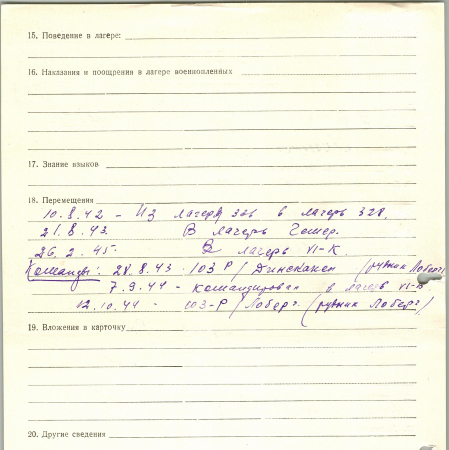 15. Поведение в лагере:
16. Наказания и поощрения в лагере военнопленных
17. Знание языков
18. Перемещения
10.8.42 - Из лагеря 326 в лагерь 328.
21.8.43. В лагерь Гемер.
26.2.45. В лагерь VI-К.
Команды: 28.8.43 103 Р / Динслакен (рудник Лоберг)
7.9.44 - командирован в лагерь
12.10.44 - 103-Р / Лоберг (рудник Лоберг)
19. Вложения в карточку
20. Другие сведения